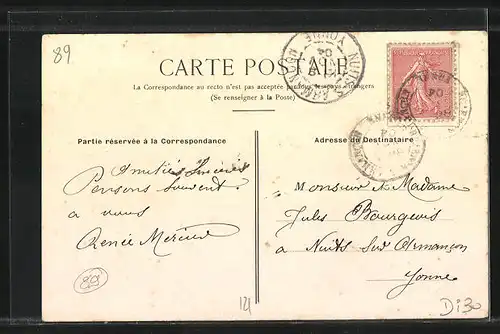 89
CARTE POSTALE
La Correspondance au recto n'est pas acceptée par tous les pays étrangers
(Se renseigner à la Poste)
Partie réservée à la Correspondance
Amitiés sincères
Pensons souvent
a vous
Renée Mercier
89
121
Adresse du Destinataire
Monsieur et Madame
Jules Bourgeois
a Nuits sur Armançon
Yonne
Di30
NUITS-S-ARMANÇON
YONNE
04